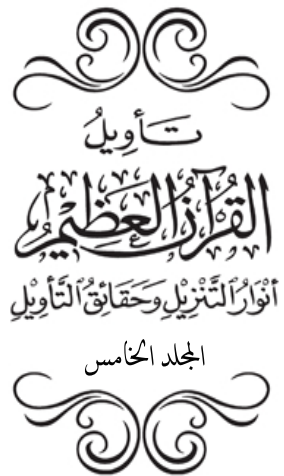 تَأوِيلُ
القُرآنِ العَظِيْمِ
أنْوَارُ التَّنْزِيْلِ وَحَقَائِقُ التَّأوِيْلِ
المجلد الخامس